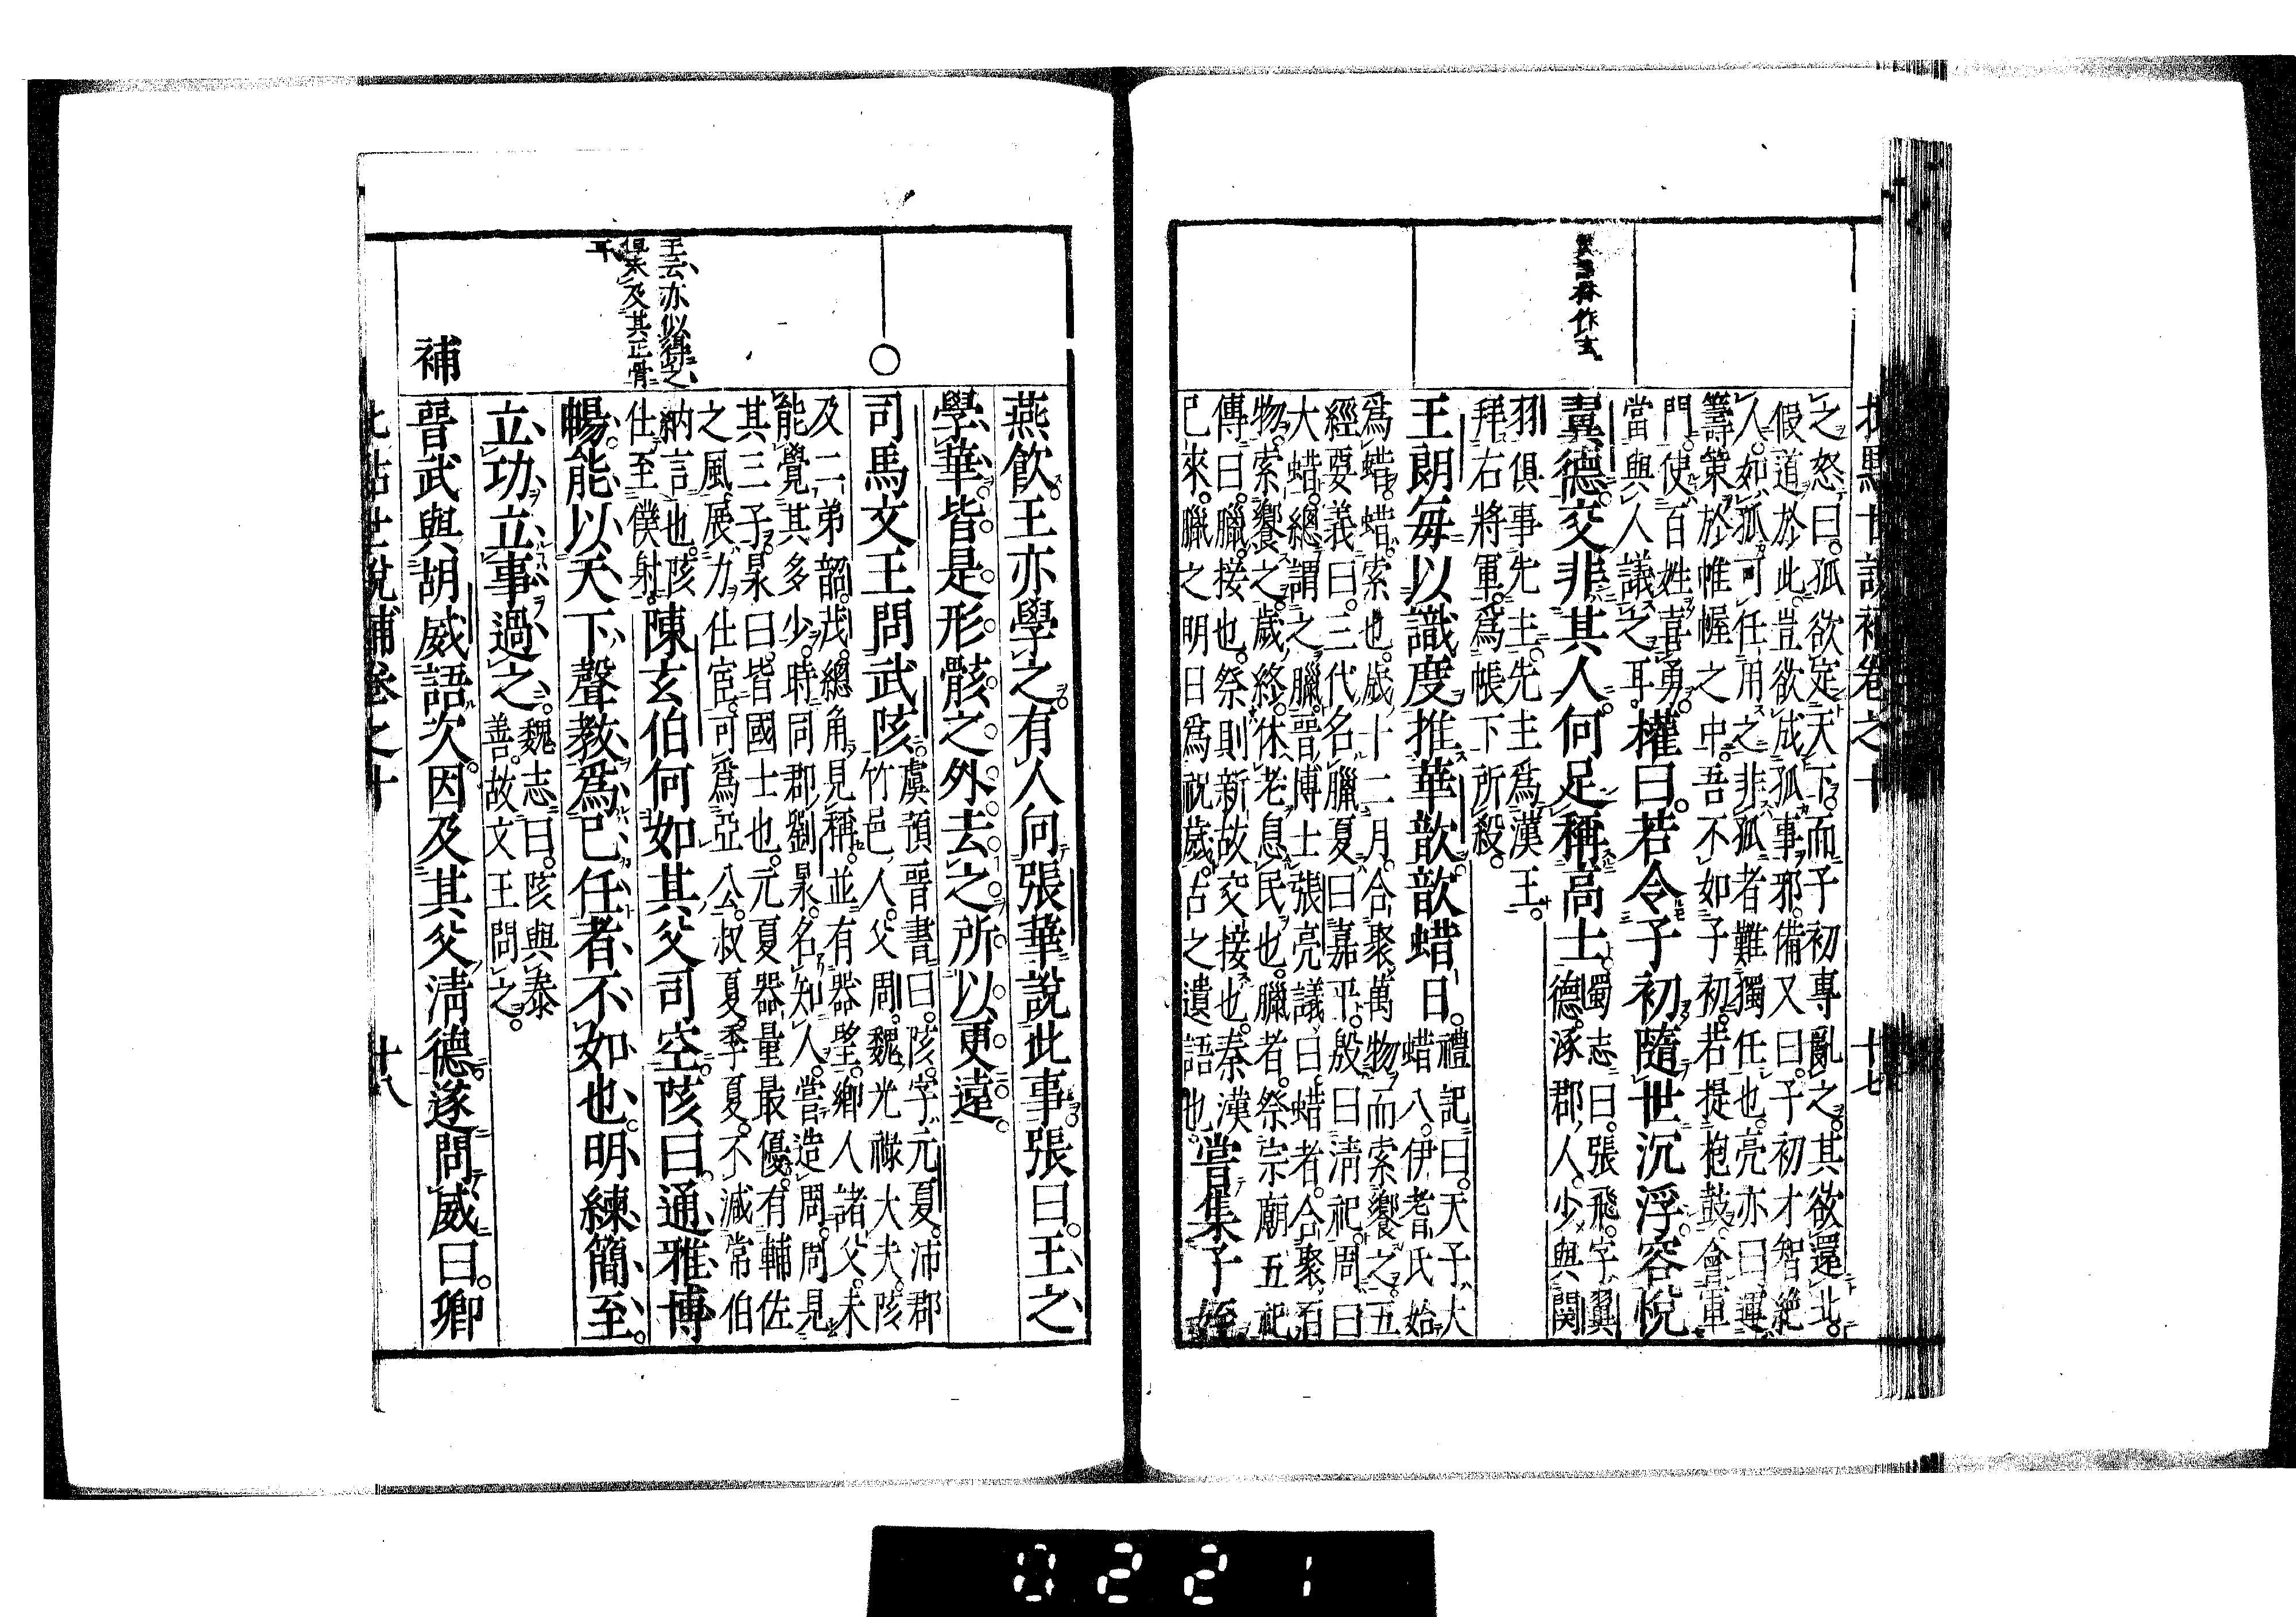 批點世說補卷之十 十七
之怒曰孤欲定天下而子初專亂之其欲還北
假道於此豈欲成孤事邪備又曰子初才智絶
人如孤可任用之非孤者難獨任也亮亦曰運
籌策於帷幄之中吾不如子初若提枹鼓會軍
門使百姓喜勇
當與人議之耳
權曰若令子初隨世沉浮容悅
翼德交非其人何足稱高士
蜀志曰張飛字翼
德涿郡人少與関
羽俱事先主先主爲漢王
拜右將軍爲帳下所殺
王朗每以識度推華歆歆蜡日
禮記曰天子大
蜡八伊耆氏始
爲蜡蜡索也歲十二月合聚萬物而索饗之五
經要義曰三代名臘夏曰嘉平殷曰淸祀周曰
大蜡總謂之臘晉博士張亮議曰蜡者合聚百
物索饗之歲終休老息民也臘者祭宗廟五祀
傳曰臘接也祭則新故交接也秦漢
已來臘之明日爲祝歲古之遺語也
嘗集子姪
作玄
燕飲王亦學之有人向張華說此事張曰王之
學華皆是形骸之外去之所以更遠
○
司馬文王問武陔
虞預晉書曰陔字元夏沛郡
竹邑人父周魏光祿大夫陔
及二弟韶茂總角見稱並有器望鄕人諸父未
能覺其多少時同郡劉杲名知人嘗造周周見
其三子杲曰皆國士也元夏器量最優有輔佐
之風展力仕宦可爲亞公叔夏季夏不減常伯
納言也陔
仕至僕射
陳玄伯何如其父司空陔曰通雅博
暢能以天下聲教爲已任者不如也明練簡至
立功立事過之
魏志曰陔與泰
善故文王問之
王云亦似得之
但未及其正骨
耳
補
晉武與胡威語次因及其父淸德遂問威曰卿
批點世說補卷之十 十八
0221